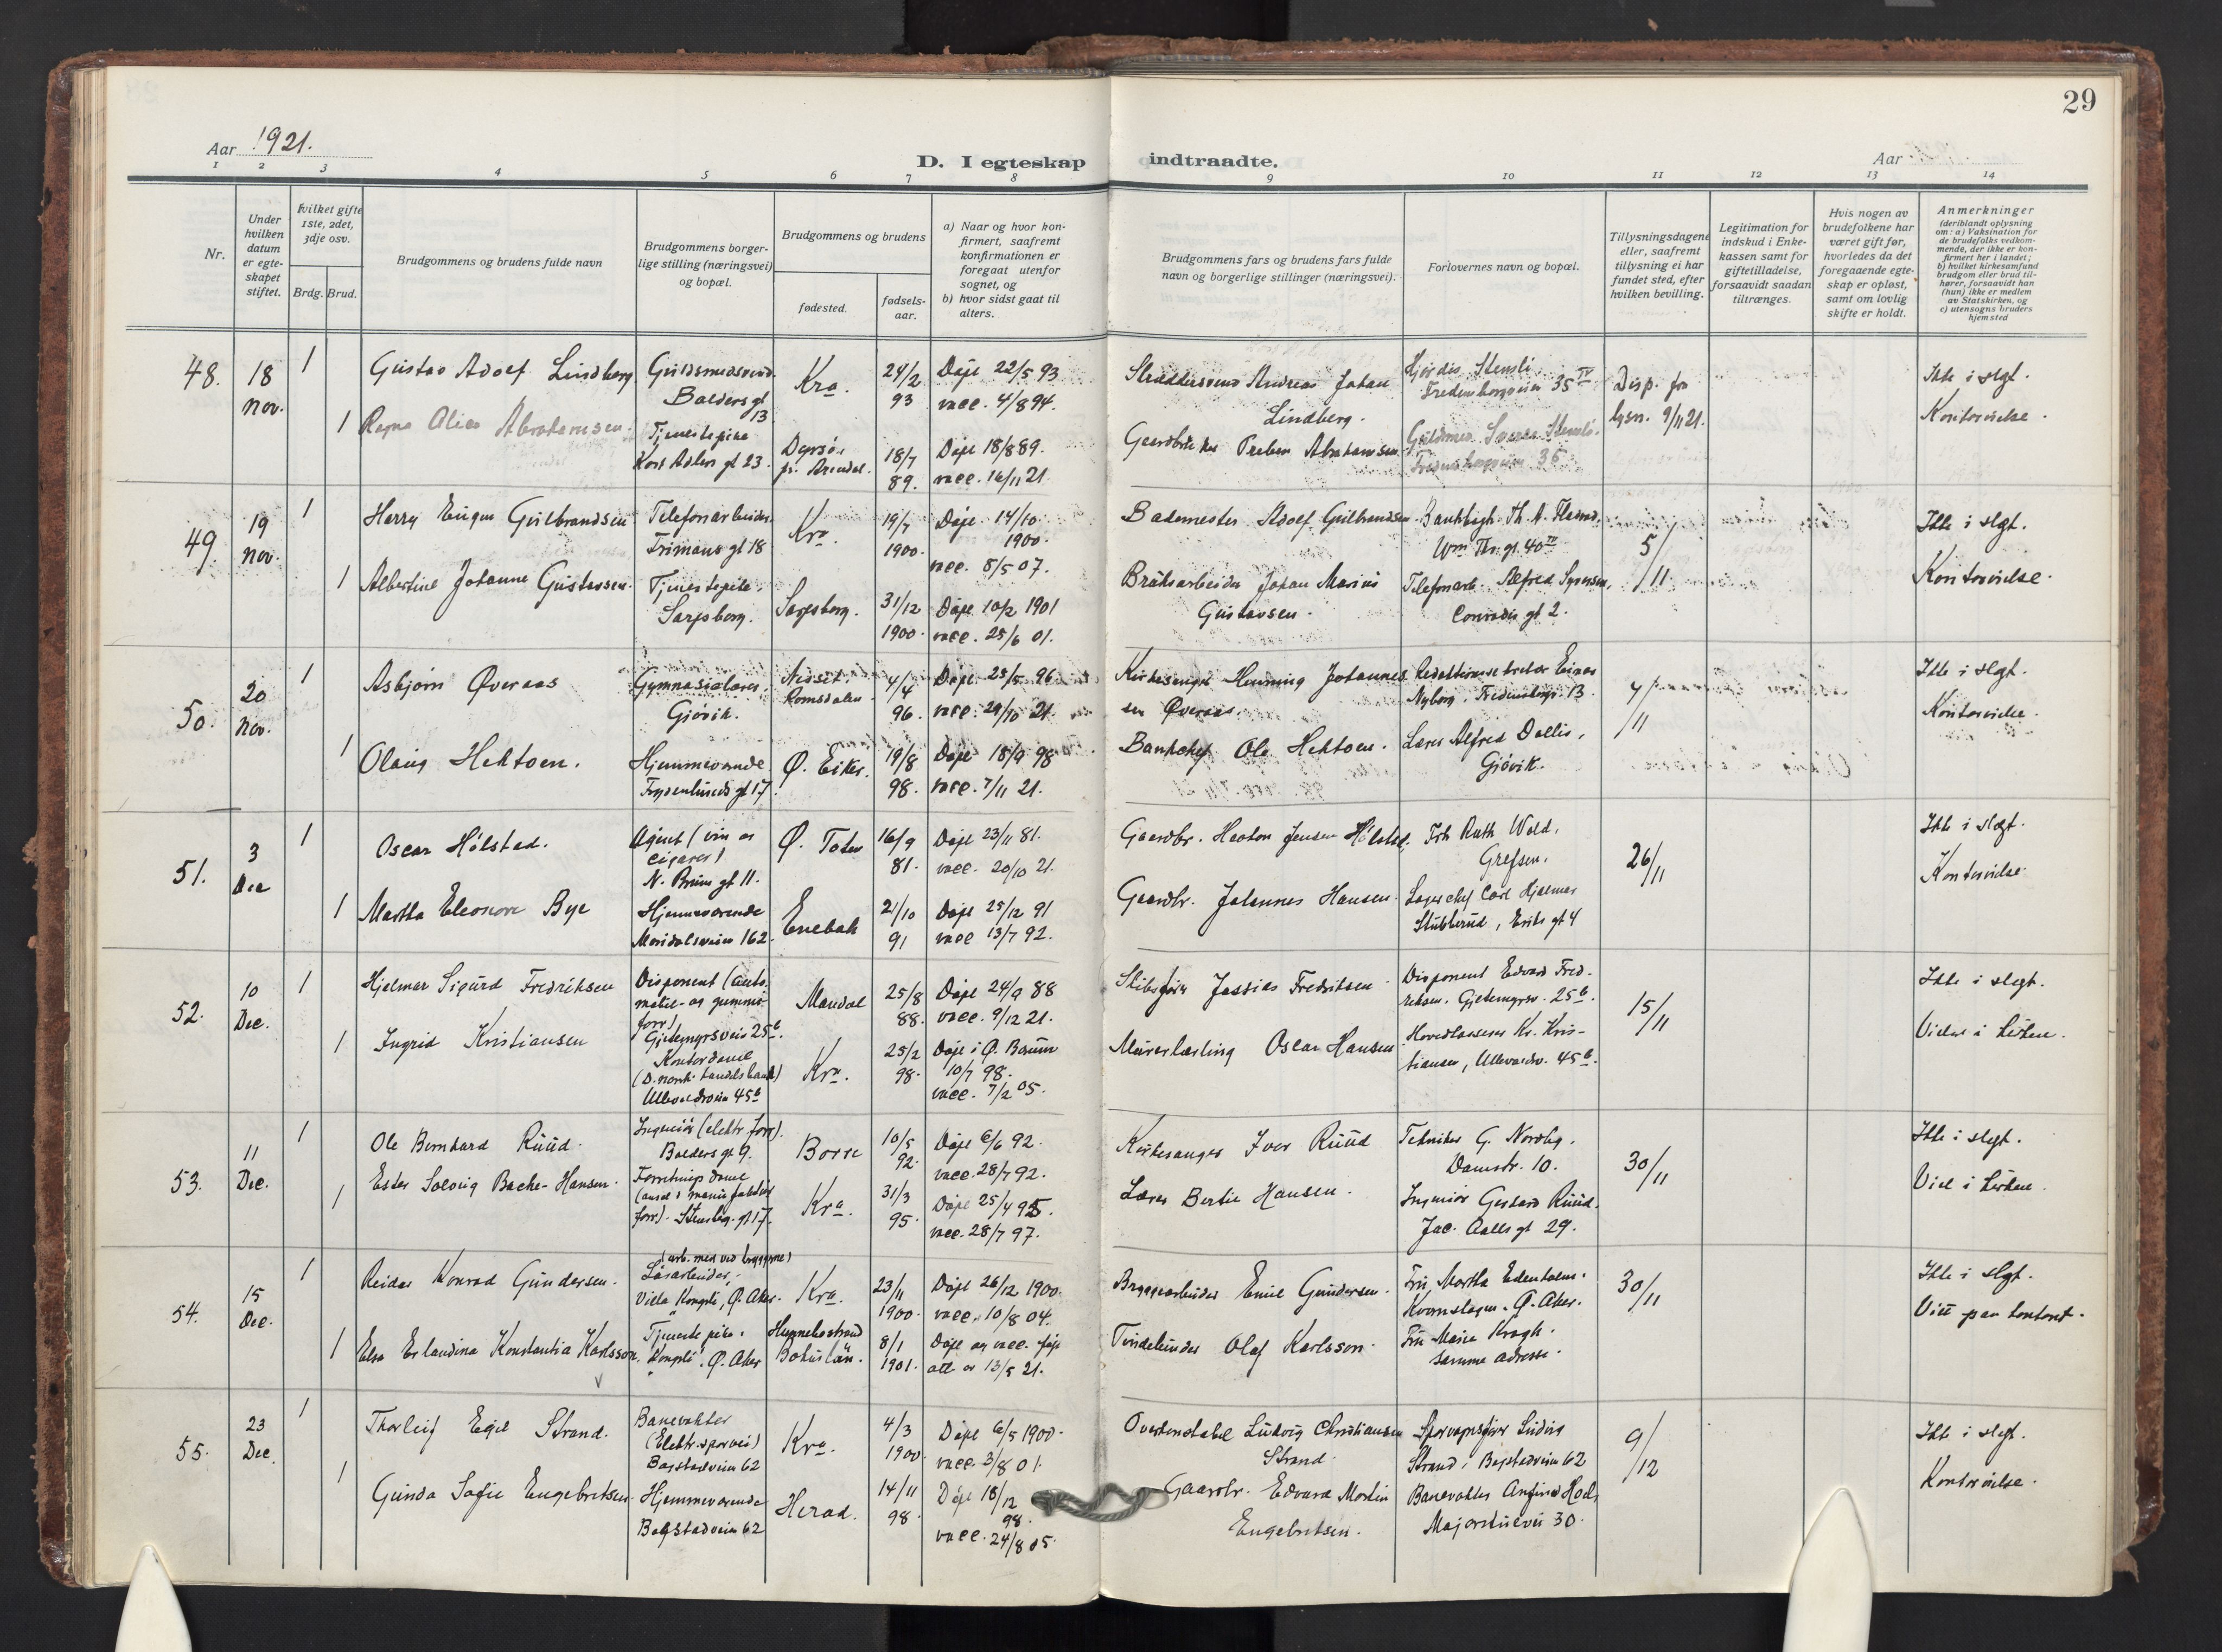 29
Aar 1921.
D. I egteskap indtraadte.
Aar
1 2 3 4 5 6 7 8 9 10 11 12 13 14
Nr.
Under
hvilken
datum
er egte-
skapet
stiftet.
Hvilket gifte
1ste, 2det,
3dje osv.
Brdg. Brud.
Brudgommens og brudens fulde navn
Brudgommens borger-
lige stilling (næringsvei)
og bopæl.
Brudgommens og brudens
fødested.
fødsels-
aar.
a) Naar og hvor kon-
firmert, saafremt
konfirmationen er
foregaat utenfor
sognet, og
b) hvor sidst gaat til
alters.
Brudgommens fars og brudens fars fulde
navn og borgerlige stillinger (næringsvei).
Forlovernes navn og bopæl.
Tillysningsdagene
eller, saafremt
tillysning ei har
fundet sted, efter
hvilken bevilling.
Legitimation for
indskud i Enke-
kassen samt for
giftetilladelse,
forsaavidt saadan
tiltrænges.
Hvis nogen av
brudefolkene har
været gift før,
hvorledes da det
foregaaende egte-
skap er opløst,
samt om lovlig
skifte er holdt.
Anmerkninger
(deriblandt oplysning
om: a) Vaksination for
de brudefolks vedkom-
mende, der ikke er kon-
firmert her i landet;
b) hvilket kirkesamfund
brudgom eller brud til-
hører, forsaavidt han
(hun) ikke er medlem
av Statskirken, og
c) utensogns bruders
hjemsted
48.
18
Nov.
1
Gustav Adolf Lindberg
Guldsmedsvend.
Balders gt
13
Kra.
24/2
93
Døpt 22/5 93
vacc. 4/8 94.
Skræddersvend Andreas Johan
Lindberg.
Hjørdis Stensli,
Fredensborgveien 35 IV
Disp. fra
lysn. 9/11 21.
Ikke i slgt.
Kontorvielse.
1
Ragna Alice Abrahamsen.
Tjenestepike
Kort Adlers gt 23.
pr. Arendal.
18/7
89.
Døpt 18/8 89.
vacc. 16/11 21.
Gaardbruker Preben Abrahamsen
Guldsmed Sverre Stensli.
Fredensborgveien 35
49.
19
Nov.
1
Harry Eugen Gulbrandsen
Telefonarbeider.
Frimanns gt 18
Kra.
19/7
1900.
Døpt 14/10
1900.
vacc. 8/5 07.
Bademester Adolf Gulbrandsen.
Wm Thr. gt. 40 IV
5/11
Ikke i slgt.
Kontorvielse.
1
Albertine Johanne Gustavsen.
Tjenestepike.
Sarpsborg.
Sarpsborg.
31/12
1900.
Døpt 10/2 1901
vacc. 25/6 01.
Bruksarbeider Johan Marius
Gustavsen.
Telefonarb. Alfred Syversen,
Conradis gt 2.
50.
20
Nov.
1
Asbjørn Øveraas
Gymnasielærer,
Gjøvik.
Nesset.
Romsdalen
4/4
96.
Døpt 25/5 96
vacc. 29/10 21.
Kirkesanger Henning Johannes-
sen Øveraas.
Redaktionssekretær Einar
Nyborg. Fredensborgv. 13
4/11
Ikke i slgt.
Kontorvielse.
1
Olaug Hektoen.
Hjemmeværende
Frydenlunds gt 17
Ø. Eiker.
19/8
98.
Døpt 18/9 98
vacc. 7/11 21.
Bankchef Ole Hektoen.
Lærer Alfred Dallis,
Gjøvik.
51.
3
Dec
1
Oscar Hølstad.
Agent (vin og
cigarer)
N. Bruns gt 11.
Ø. Toten
16/9
81.
Døpt 23/11 81.
vacc. 20/10 21.
Gaardbr. Haaton Jensen Hølstad.
Frk Ruth Wold,
Grefsen.
26/11
Ikke i slgt.
Kontorvielse
1
Martha Eleonore Bye
Hjemmeværende
Maridalsveien 162
Enebak
21/10
91
Døpt 25/12 91
vacc 13/7 92.
Gaardbr. Johannes Hansen.
Lagerchef Carl Hjalmar
Stubberud, Eriks gt 4
52.
10
Dec.
1
Hjalmar Sigurd Fredriksen
Disponent (auto-
matic- og gummi-
forr)
Gjetemyrsveien 25b.
Mandal
25/8
88.
Døpt 24/9 88
vacc. 9/12 21.
Skibsfører Jassias Fredriksen
Disponent Edvard Fred-
riksen. Gjetemyrsv. 25b.
15/11
Ikke i slegt.
Vielse i kirken.
1
Ingrid Kristiansen
Kontordame
(D. norske handelsbank)
Ullevaalsveien 45b
Kra.
25/2
98.
Døpt i Ø. Bærum
10/7 98.
vacc. 7/2 05.
Murerlærling Oscar Hansen
Hovedkasserer Kr. Kris-
tiansen, Ullevaalsv. 45b.
53.
11
Dec.
1
Ole Bernhard Ruud.
Ingeniør (elektr. forr).
Balders gt 9.
Borre
10/5
92.
Døpt 6/6 92.
vacc. 28/7 92.
Kirkesanger Iver Ruud
Tekniker G. Nordby.
Damstr. 10.
30/11
Ikke i slegt.
Viet i kirken.
1
Ester Solveig Bache-Hansen.
Forretningsdame
(ansat i manufaktur
forr). Stensbg. gt 17.
Kra.
31/3
95.
Døpt 25/4 95.
vacc. 28/7 97.
Lærer Bertin Hansen.
Ingeniør Gerhard Ruud.
Jac. Aalls gt 29.
54.
15
Dec.
1
Reidar Konrad Gundersen.
(arb. mest ved bryggerne)
Løsarbeider,
Villa Kongsli, Ø. Aker.
Kra.
23/11
1900.
Døpt 26/12 1900.
vacc. 10/8 04.
Bryggearbeider Emil Gundersen.
Fru Martha Edenholm.
Kvernstagen. Ø. Aker.
30/11
Ikke i slgt.
Viet paa kontoret.
1
Elsa Erlandina Konstantia Karlsson.
Tjenestepike.
"Kongsli". Ø. Aker
Hunnebostrand
Bohuslän.
8/1
1901.
Døpt og vacc. ifølge
att. av 13/5 21.
Olaf Karlsson.
Fru Maria Kragh.
samme adresse.
55.
23
Dec.
1
Thorleif Egil Strand.
Banevokter
(Elektr. sporvei)
Bogstadveien 62
Kra.
4/3
1900
Døpt 6/5 1900.
vacc. 3/8 01.
Overkonstabel Ludvig Christiansen
Strand.
Sporvognsfører Ludvig
Strand, Bogstadveien 62
9/12
Ikke i slegt.
Kontorvielse.
1
Gunda Sofie Engebretsen.
Hjemmeværende
Bogstadveien 62
Herad.
14/11
98.
Døpt 18/12
98.
vacc. 24/8 05.
Gaardbr. Edvard Martin
Engebretsen.
Majorstuevei 30.